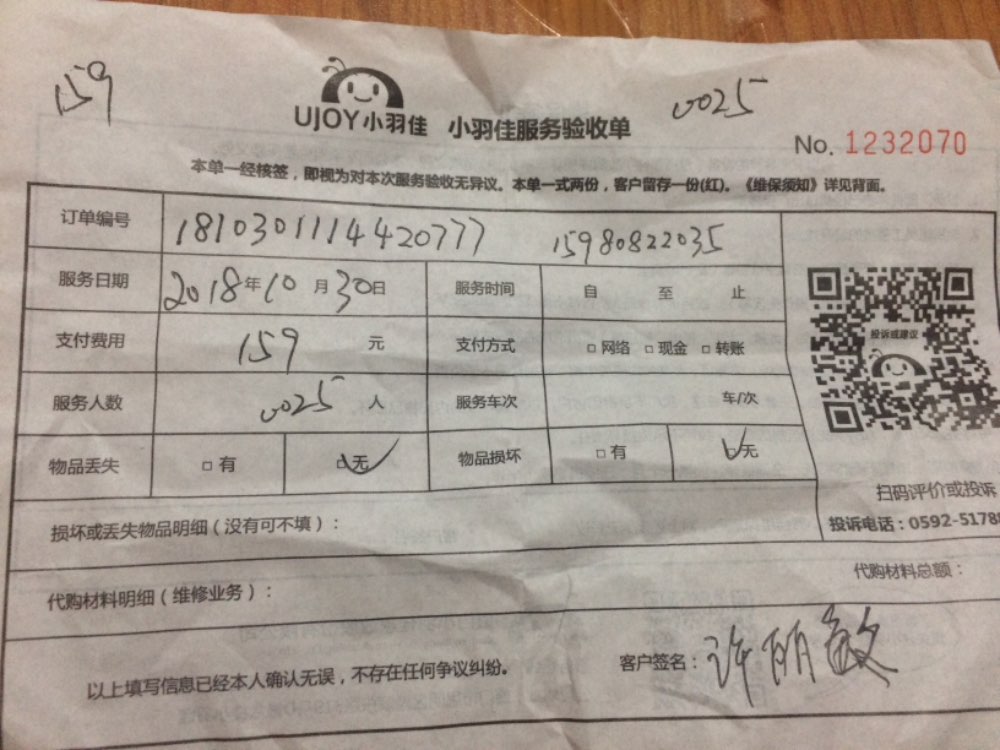 159
0025
UJOY小羽佳 小羽佳服务验收单
No. 1232070
本单一经核签，即视为对本次服务验收无异议。本单一式两份，客户留存一份(红)。《维保须知》详见背面。
订单编号 181030111442077​7 15980822035
服务日期 2018年10月30日 服务时间 自 至 止
支付费用 159 元 支付方式 □网络 □现金 □转账
服务人数 0025 人 服务车次 车/次
物品丢失 □有 □无 物品损坏 □有 □无
投诉或建议
扫码评价或投诉
投诉电话：0592-5178
损坏或丢失物品明细（没有可不填）：
代购材料明细（维修业务）： 代购材料总额：
以上填写信息已经本人确认无误，不存在任何争议纠纷。 客户签名：许丽敏